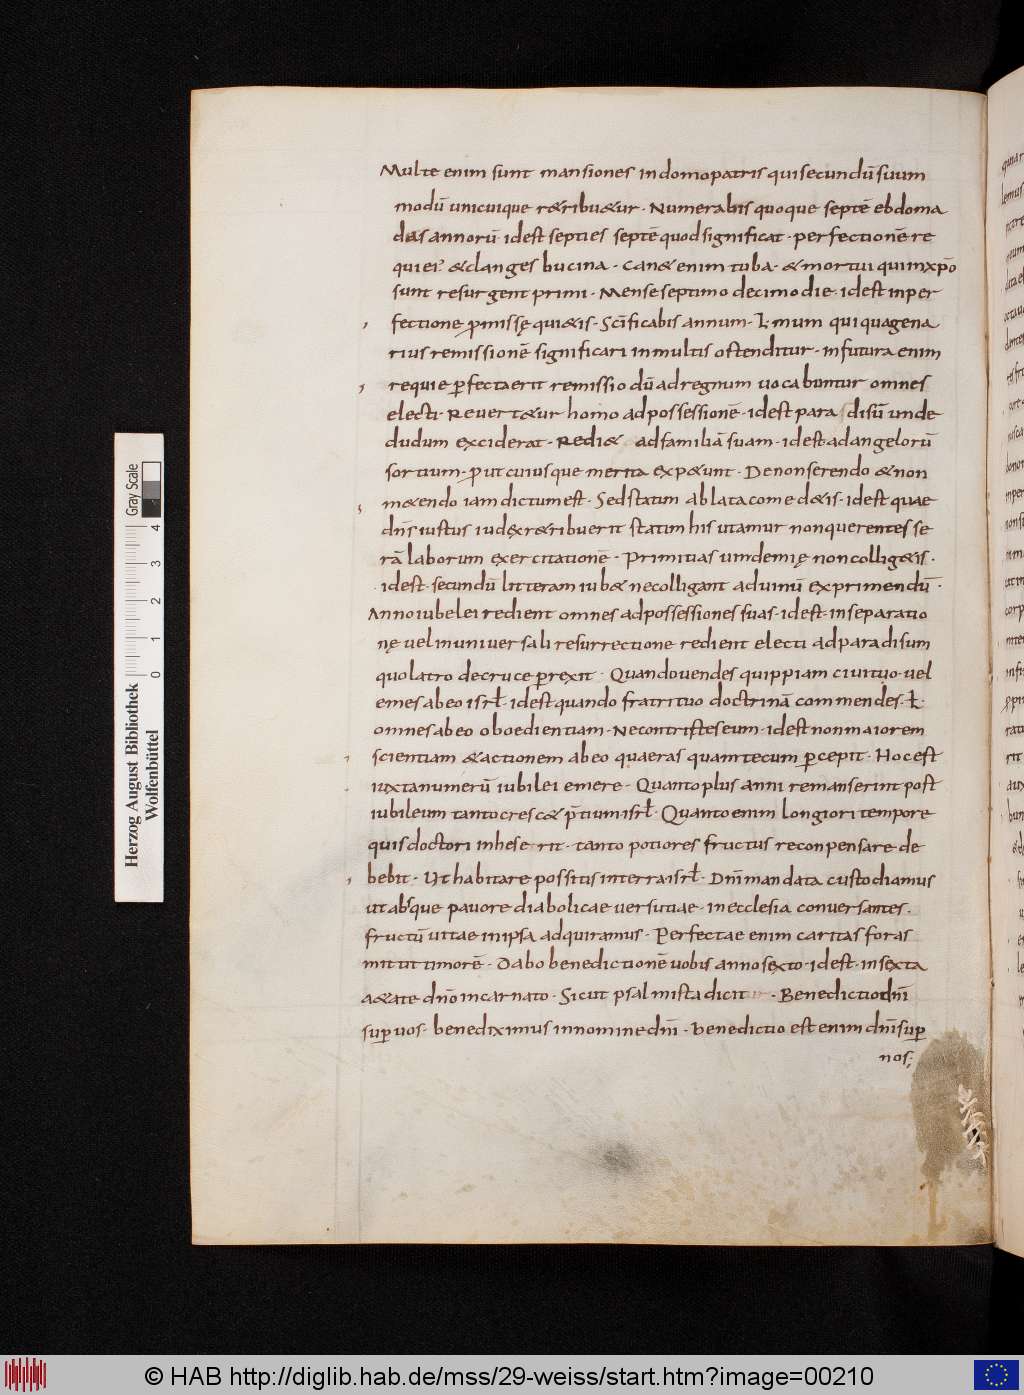 Multe enim sunt mansiones in domo patris qui secundū suum
modū unicuique r&ribu&ur · Numerabis quoque septē ebdoma
das annorū · id est septies septē quod significat · perfectionē re
quiei · & clanges bucina · Can& enim tuba · & mortui qui in xp̄o
sunt resurgent primi · Mense septimo decimo die · id est in per
fectione p̄missę qui&is · Sc̄ificabis annum · L · mum quiquagena
rius remissionē significari in multis ostenditur · in futura enim
requie ꝑfecta erit remissio dū ad regnum uocabuntur omnes
electi · Reuert&ur homo ad possessionē · id est para disū unde
dudum exciderat · Redi& ad familiā suam · id est ad angelorū
sortium · ꝓut cuiusque merita exp&unt · De non serendo & non
m&endo iam dictum est · Sed statim ablata comed&is · id est quae
dn̄s iustus iudęx r&ribuerit statim his utamur non querentes se
rā laborum exercitationē · Primitias uindemię non collig&is ·
· id est · secundū litteram iub& ne colligant ad uinū exprimendū ·
Anno iubelei redient omnes ad possessiones suas · id est · in separatio
nę uel in uniuersali resurrectione redient electi ad paradisum
quo latro de cruce ꝑrexit · Quando uendes quippiam ciui tuo · uel
emes ab eo isrł · id est quando fratri tuo doctrinā commendes · ł ·
omnes ab eo oboedientiam · Ne contristes eum · id est non maiorem
scientiam & actionem ab eo quaeras quam tecum ꝑcepit · Hoc est
iuxta numerū iubilei emere · Quanto plus anni remanserint post
iubileum tanto cresc& p̄tium isrł · Quanto enim longiori tempore
quis doctori inheserit · tanto potiores fructus reconpensare de
bebit · Ut habitare possitis in terra isrł · Dn̄i mandata custodiamus
ut absque pauore diabolicae uersutiae · in ecclesia conuersantes ·
fructū uitae in ipsa adquiramus · Perfectae enim caritas foras
mittit timorē · Dabo benedictionē uobis anno sexto · id est · in sexta
a&ate dn̄o incarnato · Sicut psalmista dicit · Benedictio dn̄i
suꝑ uos · benediximus in nomine dn̄i · benedictio est enim dn̄i suꝑ
nos;
ginar
lemus
Herzog August Bibliothek
Wolfenbüttel
0 1 2 3 4
Gray Scale
© HAB http://diglib.hab.de/mss/29-weiss/start.htm?image=00210